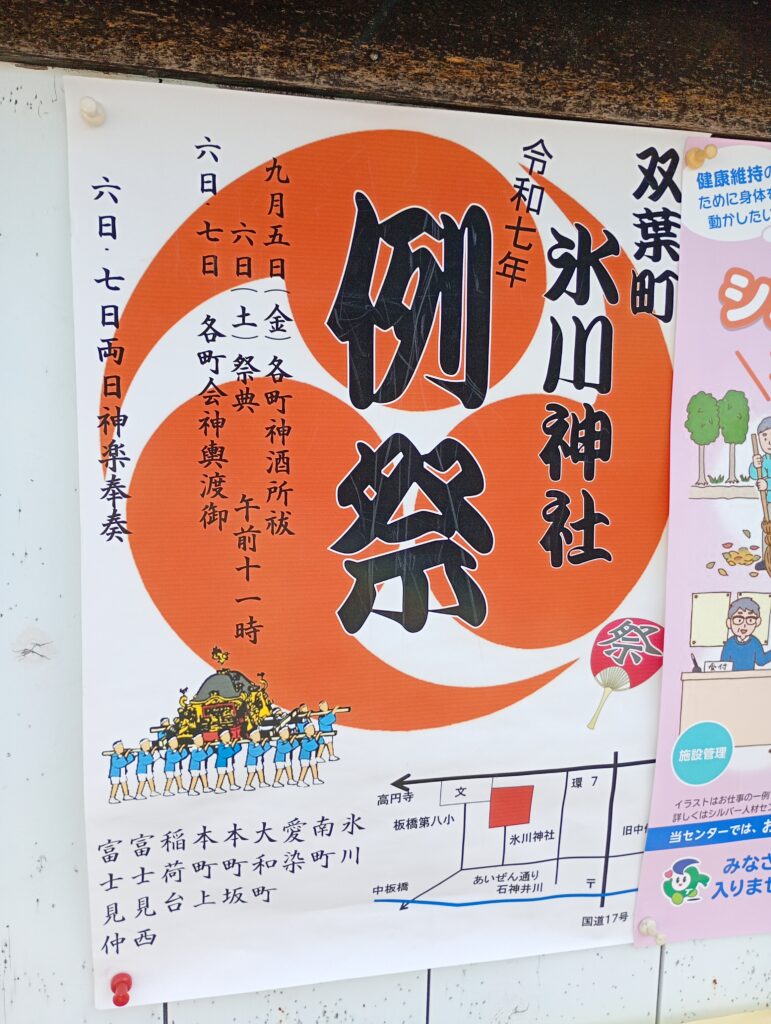 双葉町
氷川神社
令和七年
例祭
九月五日(金)各町神酒所祓
六日(土)祭典 午前十一時
六日・七日 各町会神輿渡御
六日・七日両日神楽奉奏
祭
氷川
南町
愛染
大和町
本町坂
本町上
稲荷台
富士見西
富士見仲
高円寺
文
環7
板橋第八小
氷川神社
旧中
あいぜん通り
石神井川
中板橋
〒
国道17号
健康維持の
ために身体を
動かしたい
シ
受付
施設管理
イラストはお仕事の一例
詳しくはシルバー人材セン
当センターでは、お
みなさ
入りませ